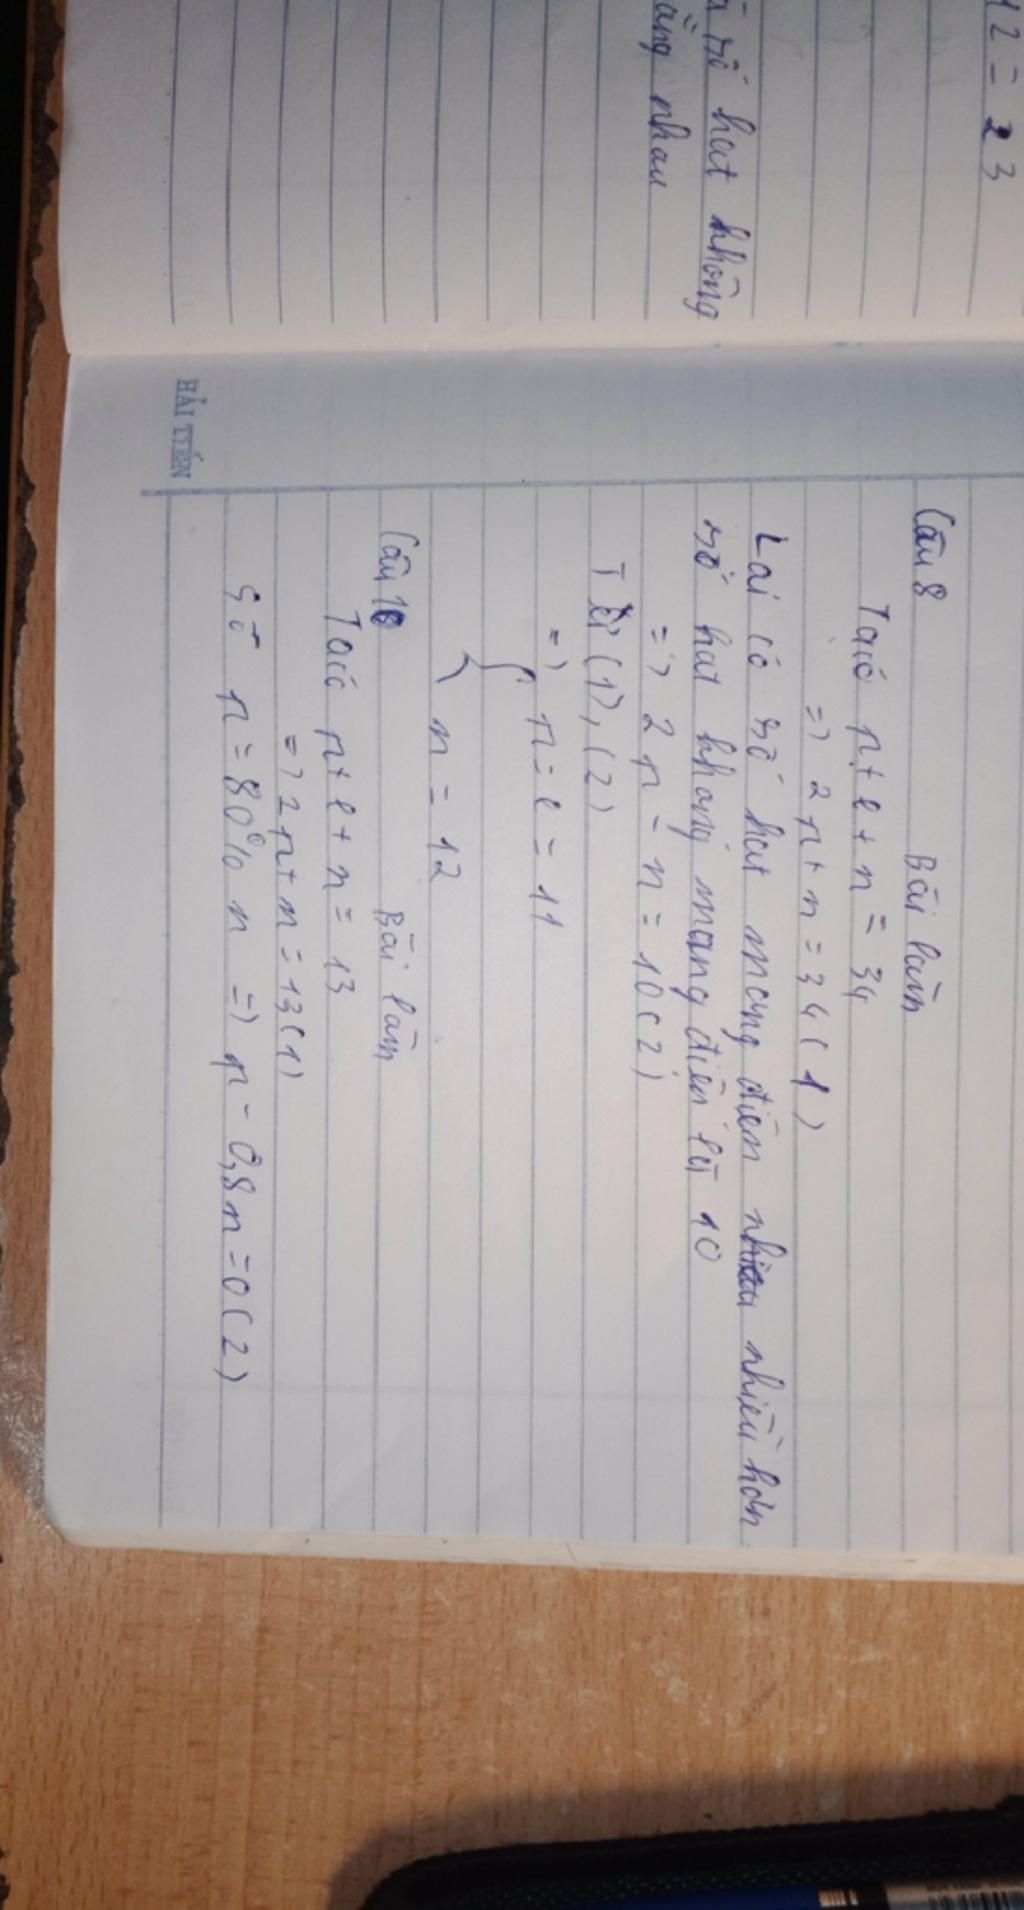 12 = 23
số hạt không
bằng nhau
HẢI TIẾN
Câu 8
Bài làm
Ta có p + e + n = 34
=> 2p + n = 34 (1)
Lại có số hạt mang điện nhiều nhiều hơn
số hạt không mang điện là 10
=> 2p - n = 10 (2)
Từ (1), (2)
=> { p = e = 11
n = 12
Câu 10
Bài làm
Ta có p + e + n = 13
=> 2p + n = 13 (1)
Số p = 80% n => p - 0,8n = 0 (2)